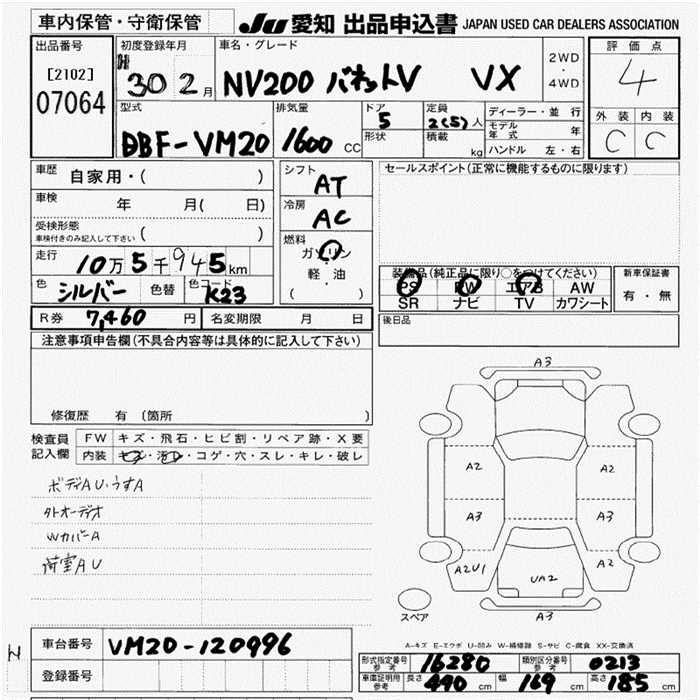 車内保管・守衛保管 JU 愛知 出品申込書 JAPAN USED CAR DEALERS ASSOCIATION
出品番号
[2102]
07064
初度登録年月
H 30 2月
車名・グレード
NV200 バネットV VX
2WD
・
4WD
評価点
4
外装 内装
C C
型式
DBF-VM20
排気量
1600 CC
ドア
5
形状
定員
2(5)人
積載
kg
ディーラー・並行
モデル年式 年
ハンドル 左・右
車歴
自家用・( )
車検
年 月( 日)
受検形態
車検付きのみ記入して下さい ( )
走行
10万5千945km
色
シルバー
色替
色コード
K23
シフト
AT
冷房
AC
燃料
ガソリン
軽・油
( )
セールスポイント(正常に機能するものに限ります)
装備品(純正品に限り○をつけてください)
PS PW エアB AW
SR ナビ TV カワシート
新車保証書
有・無
R券 7,460 円
名変期限 月 日
後日品
注意事項申告欄(不具合内容等は具体的に記入して下さい)
修復歴 有(箇所 )
検査員記入欄
FW キズ・飛石・ヒビ割・リペア跡・X要
内装 キズ・汚レ・コゲ・穴・スレ・キレ・破レ
ボディAU・うすA
外オーディオ
WカバーA
荷室AU
A3
A2 A2
A3 A3
A2U1 A2
UA2
A3
スペア
A-キズ E-エクボ U-凹み W-補修跡 S-サビ C-腐食 XX-交換済
車台番号 VM20-120996
登録番号
形式指定番号 参考 16280
類別区分番号 参考 0213
車庫証明用 参考 長さ 440 cm 幅 169 cm 高さ 185 cm